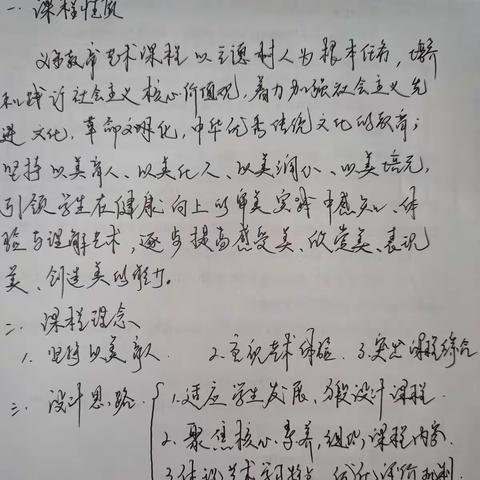 一、课程性质
义务教育艺术课程以立德树人为根本任务，培育
和践行社会主义核心价值观，着力加强社会主义先
进文化，革命文化，中华优秀传统文化的教育；
坚持以美育人、以美化人、以美润心、以美培元，
引领学生在健康向上的审美实践中感知、体
验与理解艺术，逐步提高感受美、欣赏美、表现
美、创造美的能力。
二、课程理念
1. 坚持以美育人 2. 重视艺术体验 3. 突出课程综合
三、设计思路 1. 适应学生发展，分段设计课程.
2. 聚焦核心素养，组织课程内容.
3. 体现艺术学习特点，优化评价机制